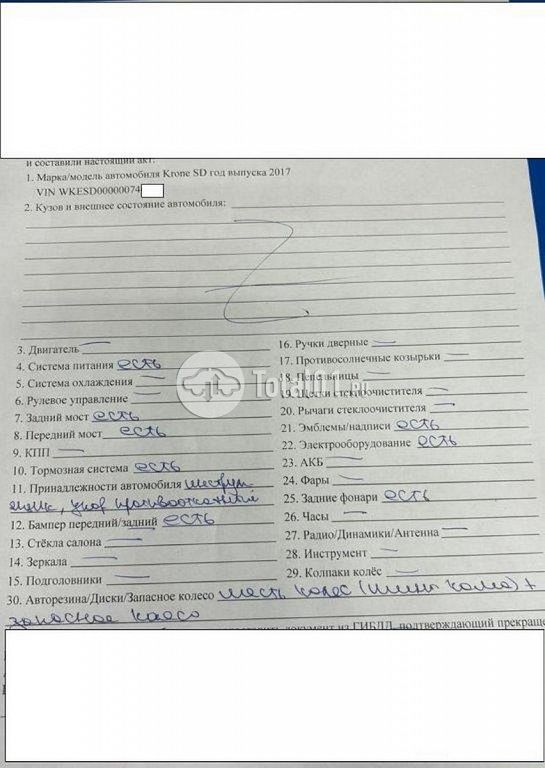 и составили настоящий акт:
1. Марка/модель автомобиля Krone SD год выпуска 2017
VIN WKESD00000074
2. Кузов и внешнее состояние автомобиля:
3. Двигатель
4. Система питания есть
5. Система охлаждения
6. Рулевое управление
7. Задний мост есть
8. Передний мост есть
9. КПП
10. Тормозная система есть
11. Принадлежности автомобиля инструм
ящик, упор противооткатный
12. Бампер передний/задний есть
13. Стёкла салона
14. Зеркала
15. Подголовники
16. Ручки дверные
17. Противосолнечные козырьки
18. Пепельницы
19. Щетки стеклоочистителя
20. Рычаги стеклоочистителя
21. Эмблемы/надписи есть
22. Электрооборудование есть
23. АКБ
24. Фары
25. Задние фонари есть
26. Часы
27. Радио/Динамики/Антенна
28. Инструмент
29. Колпаки колёс
30. Авторезина/Диски/Запасное колесо шесть колес (шины колма) +
запасное колесо
документ из ГИБДД, подтверждающий прекраще
Total01.ru